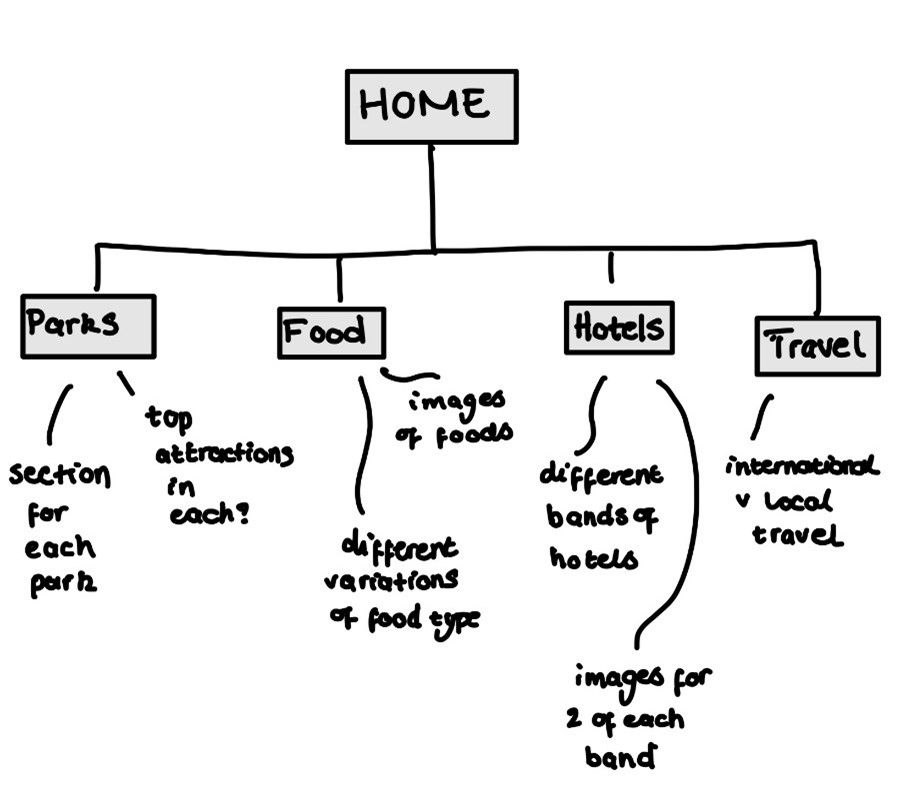 HOME
Parks
Food
Hotels
Travel
section
for
each
park
top
attractions
in
each?
images
of foods
different
variations
of food type
different
bands of
hotels
images for
2 of each
band
international
v local
travel